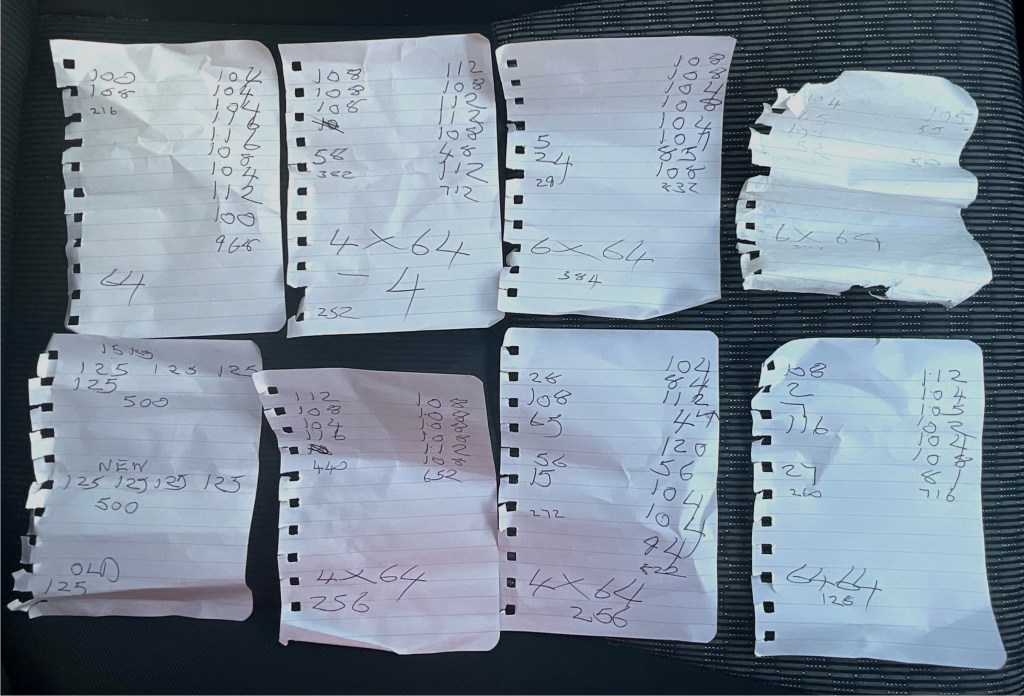 100 104
108 104
216 104
116
116
108
104
112
100
968
64
108 112
108 108
108 112
112
108
58 48
382 112
712
4 X 64
- 4
252
108
108
104
108
104
5 107
24 85
29 108
832
6 X 64
384
104 105
55
6 X 64
125 125 125
125
500
NEW
125 125 125 125
500
OLD
125
112 108
108 108
104 108
116 108
112
440 108
652
4 X 64
256
104
28 84
108 112
65 47
120
56 56
15 104
272 104
94
822
4 X 64
256
108 112
2 104
7 105
116 102
104
108
27 81
260 716
64 64
128